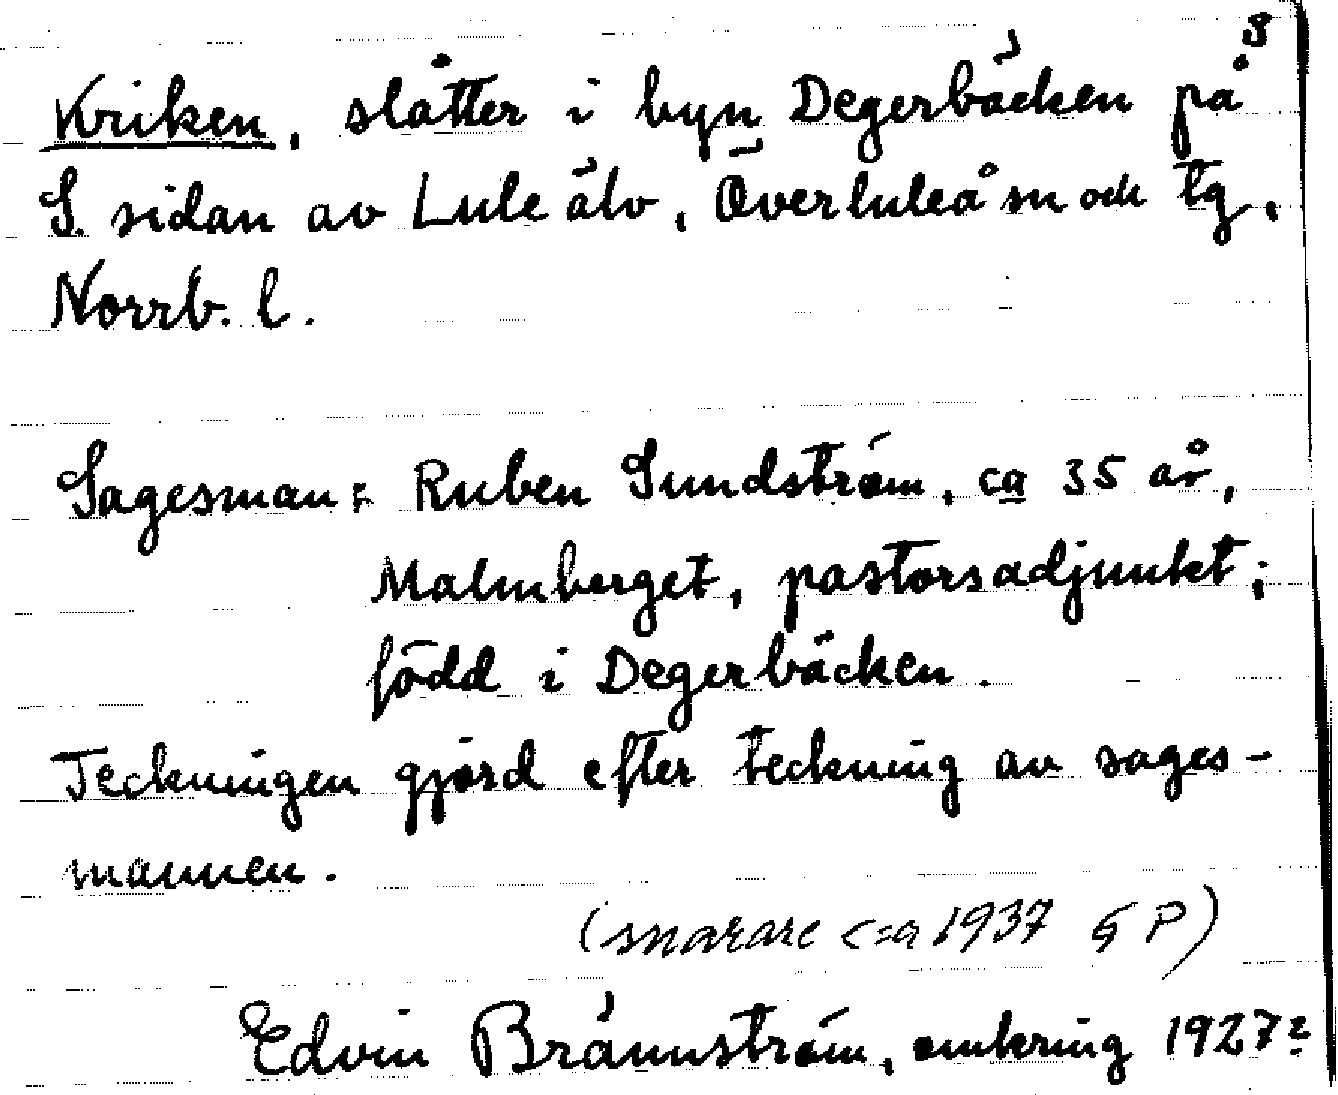 8
Kriken, slåtter i byn Degerbäcken på
S. sidan av Lule älv, Överluleå sn och tg,
Norrb. l.
Sagesman: Ruben Sundström, ca 35 år,
Malmberget, pastorsadjunkt;
född i Degerbäcken.
Teckningen gjord efter teckning av sages-
mannen.
(snarare c:a 1937 GP)
Edvin Brännström, omkring 1927?